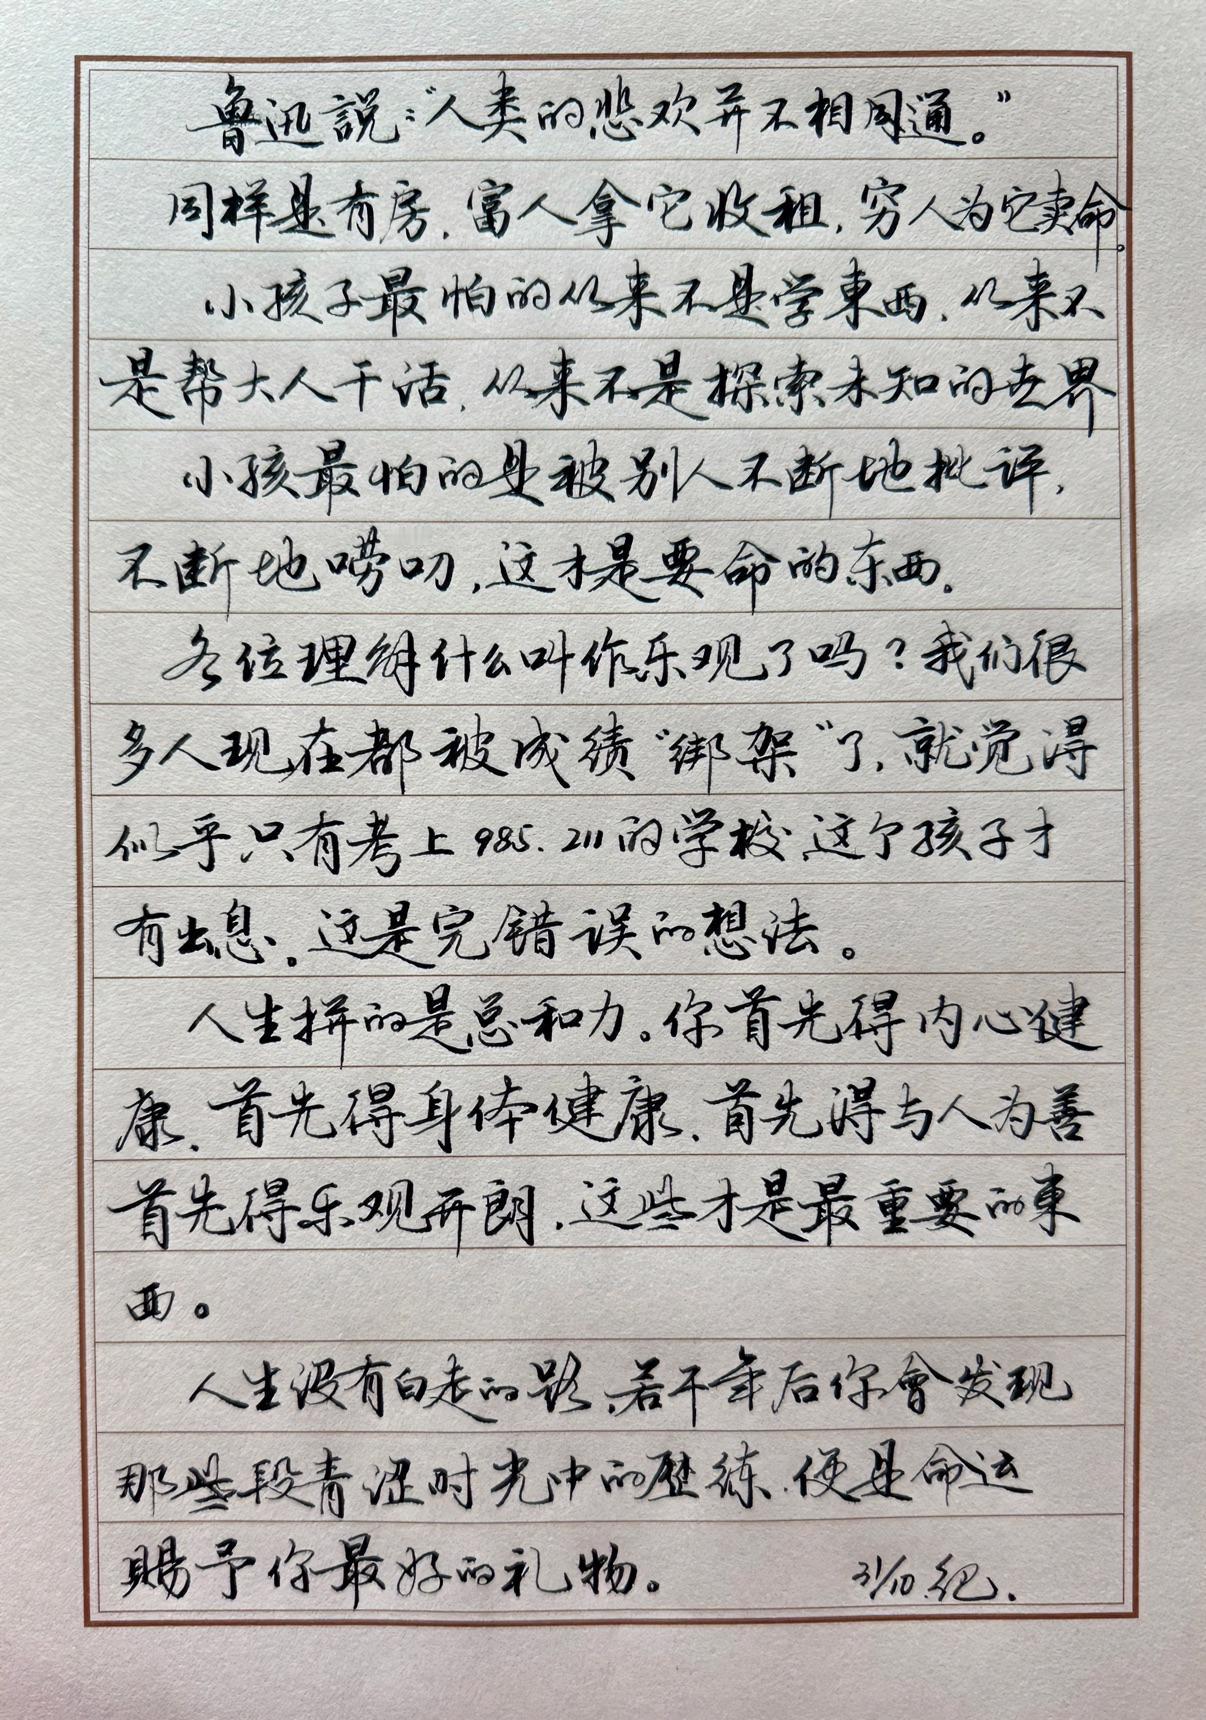 鲁迅説：“人类的悲欢并不相同通。”
同样是有房，富人拿它收租，穷人为它卖命。
小孩子最怕的从来不是学東西，从来不
是帮大人干活，从来不是探索未知的世界
小孩最怕的是被别人不断地批评，
不断地唠叨，这才是要命的东西。
各位理解什么叫作乐观了吗？我们很
多人现在都被成绩“绑架”了，就觉得
似乎只有考上985、211的学校，这个孩子才
有出息。这是完错误的想法。
人生拼的是总和力。你首先得内心健
康，首先得身体健康，首先得与人为善
首先得乐观开朗，这些才是最重要的東
西。
人生没有白走的路，若干年后你會发现
那些段青涩时光中的歷练，便是命运
賜予你最好的礼物。 31/10 纪.